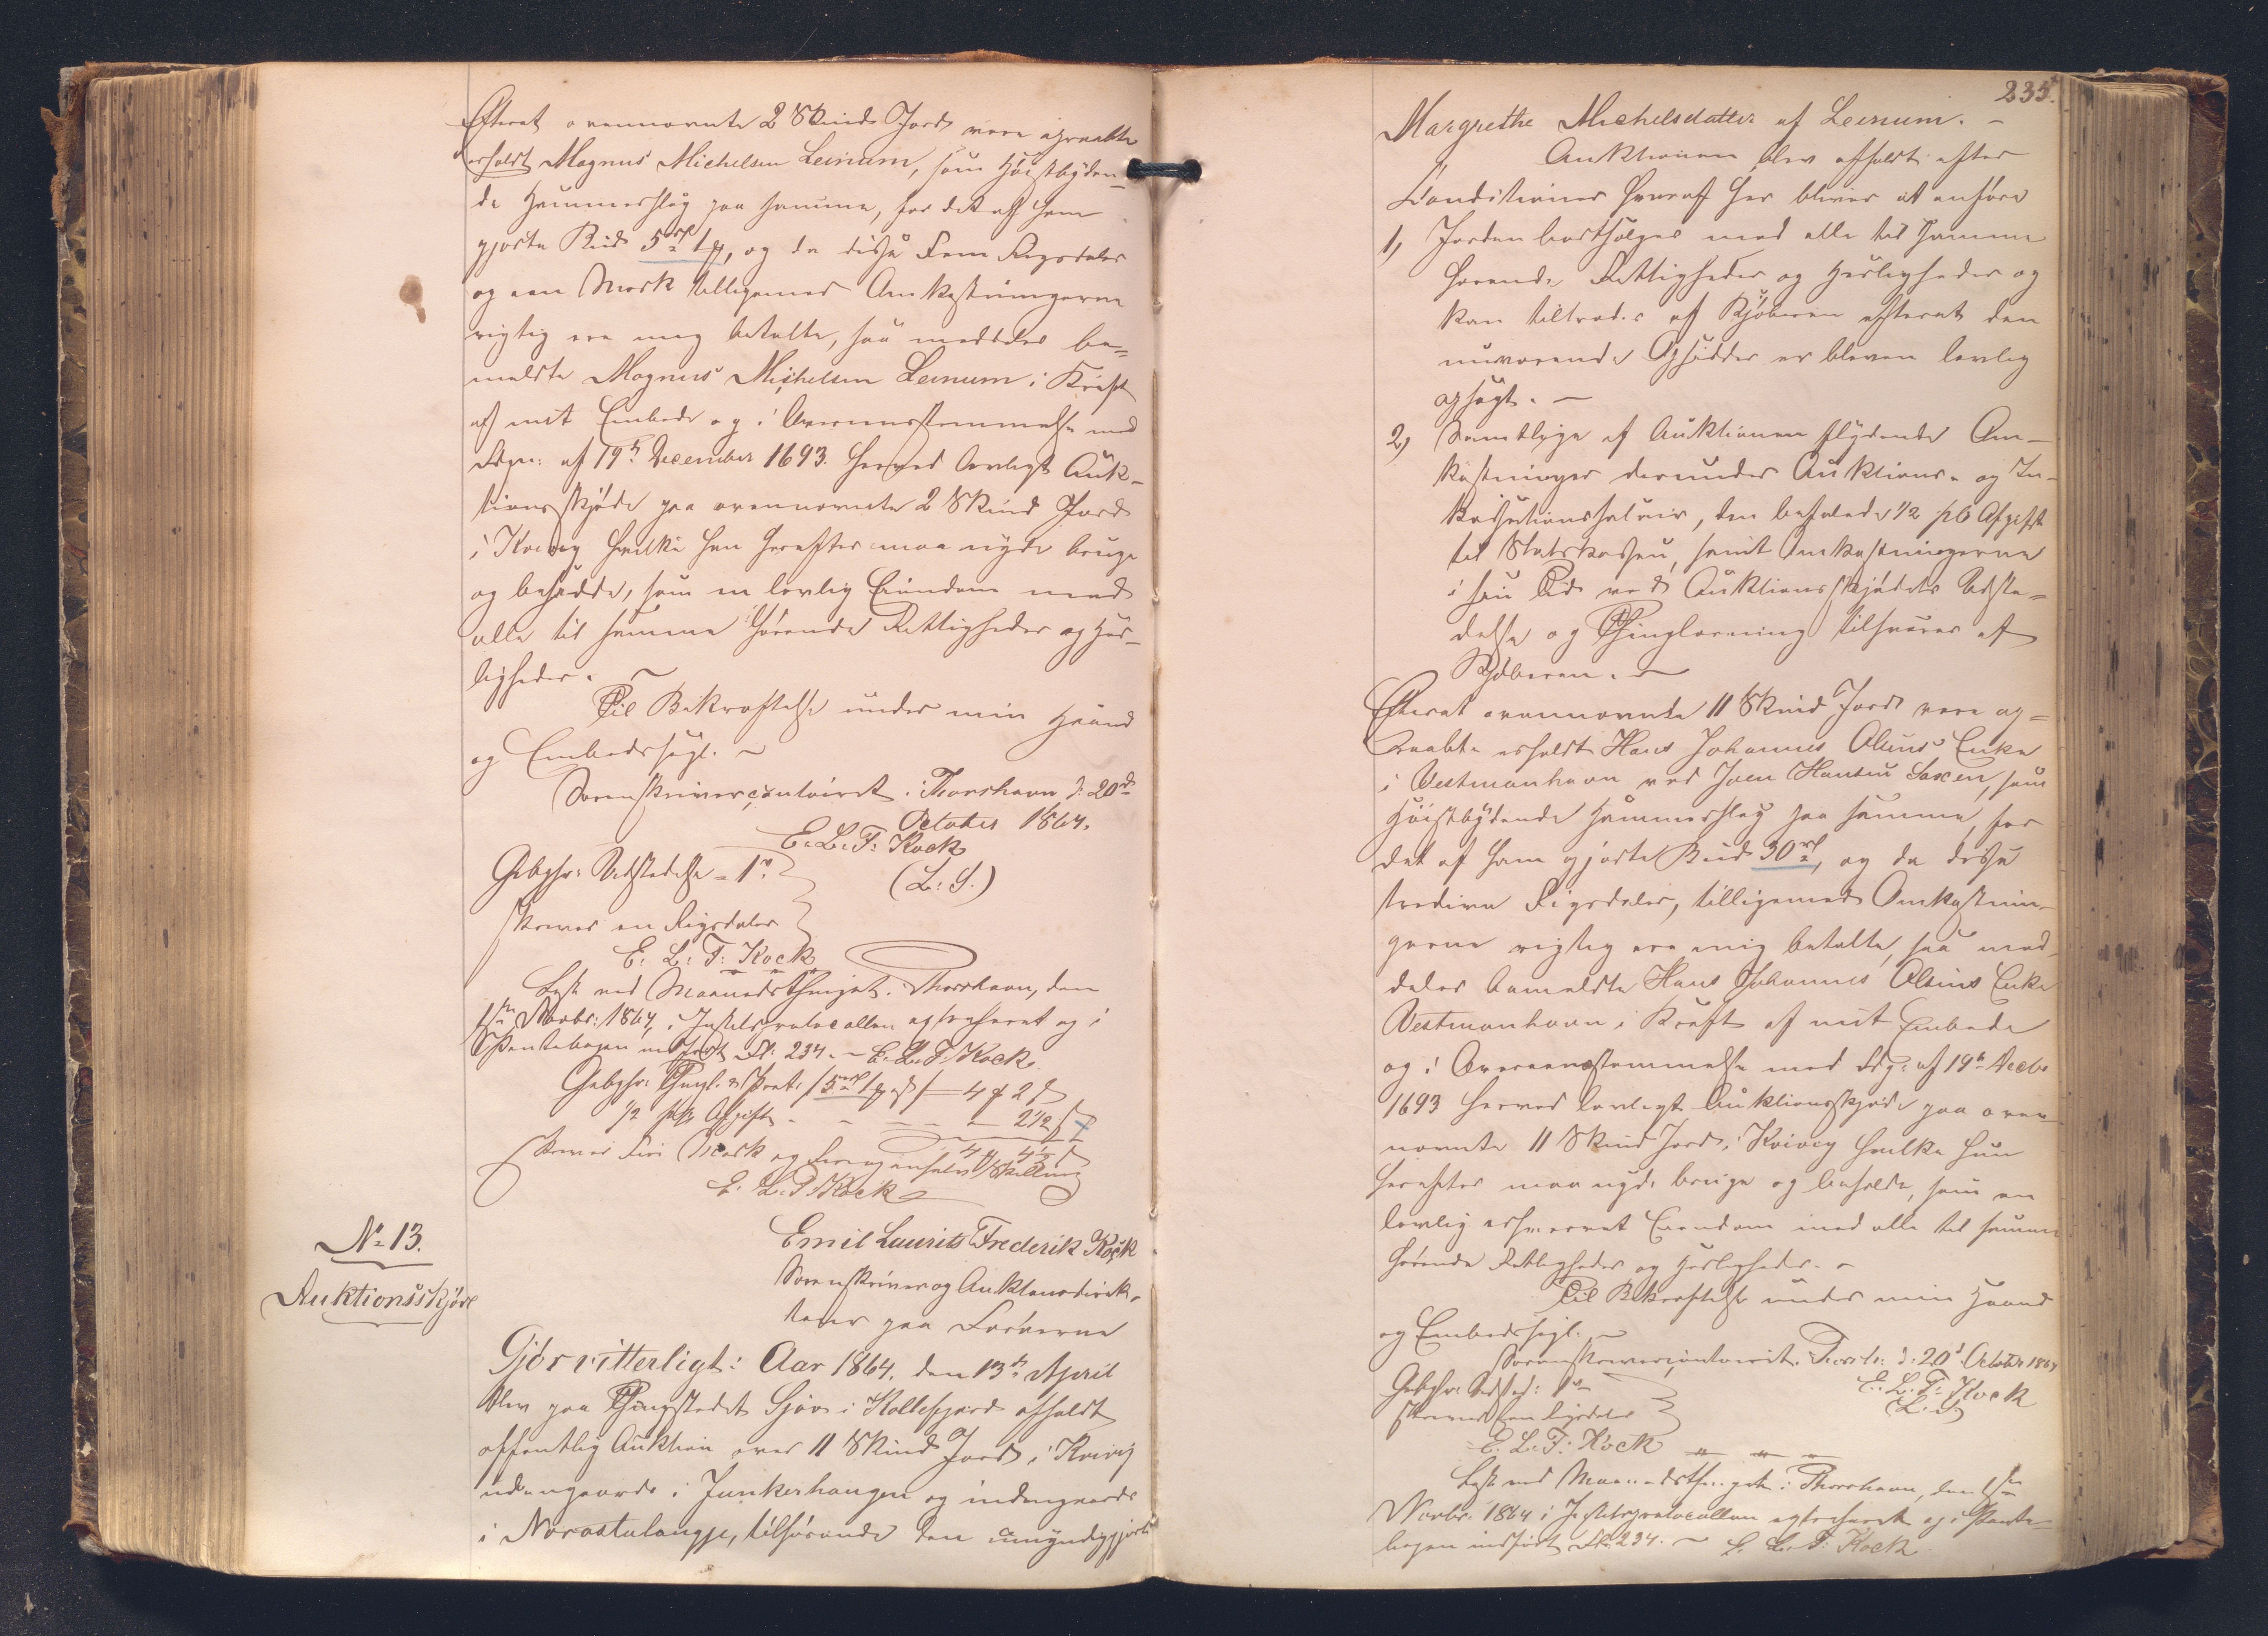 Efterat ovennævnte 2 Skind Jord vare opraabte
erholdt Magnus Michelsen Leinum, som Høistbyden-
de Hammerslag paa samme, for det af ham
gjorte Bud 5 rd 1 mk, og da disse Fem Rigsdaler
og een Mark tilligemed Omkostningerne
rigtig ere mig betalte, saa meddeles be-
meldte Magnus Michelsen Leinum i Kraft
af mit Embede og i Overensstemmelse med
Fdgn: af 19de December 1693 herved lovligt Auk-
tionsskjøde paa ovennævnte 2 Skind Jord
i Kvivig hvilke han herefter maa nyde bruge
og besidde, som en lovlig Eiendom med
alle til samme hørende Rettigheder og Her-
ligheder.
Til Bekræftelse under min Haand
og Embedssegl.
Sorenskrivercontoiret i Thorshavn d: 20de
October 1864.
E. L. F: Kock
(L: S.)
Gebyhr: Udstedelse = 1 rd
skriver en Rigsdaler
E: L: F: Kock
Læst ved Maanedsthinget i Thorshavn, den
1ste Novbr: 1864, i Justitsprotocollen extraheret og i
Skjøntebogen indført Fl: 234. E. L. F. Kock.
Gebyhr: Thingl. & Skriv: (5 rd 1 mk) 4 mk 2 s
1/2 pCt Afgift - - - - 2 1/2 s
4 mk 4 1/2 s
skriver Fire Mark og Fire og en halv Skilling
E. L. F. Kock
No 13.
Auktionsskjøde
Emil Laurits Frederik Kock
Sorenskriver og Auktionsdirek-
teur paa Færøerne
Gjør vitterligt: Aar 1864, den 13de April
blev paa Thingstedet Sjøv i Kollefjord afholdt
offentlig Auktion over 11 Skind Jord i Kvivig
udengaards i Junkerhaugen og indengaards
i Norastulangje, tilhørende den umyndiggjorte
235.
Margrethe Michelsdatter af Leinum. -
Auktionen blev afholdt efter
Conditioner hvoraf her bliver at anføre
1, Jorden bortsælges med alle til samme
hørende Rettigheder og Herligheder og
kan tiltrædes af Kjøberen efterat den
nuværende Opsidder er bleven lovlig
opsagt. -
2, Samtlige af Auktionen flydende Om-
kostninger derunder Auktions- og In-
kassationssalair, den befalede 1/2 pCt Afgift
til Statskassen, samt Omkostningerne
i sin Tid ved Auktionsskjødets Udste-
delse og Thinglæsning tilsvares af
Kjøberen. -
Efterat ovennævnte 11 Skind Jord vare op-
raabte erholdt Hans Johannes Olsens Enke
i Vestmanhavn ved Joen Hansen Saxen, som
Høistbydende Hammerslag paa samme, for
det af ham gjorte Bud 30 rd, og da disse
tredive Rigsdaler, tilligemed Omkostnin-
gerne rigtig ere mig betalte, saa med-
deles bemeldte Hans Johannes Olsens Enke
Vestmanhavn i Kraft af mit Embede
og i Overeensstemmelse med Fdg: af 19de Decbr
1693 herved lovligt Auktionsskjøde paa oven-
nævnte 11 Skind Jord i Kvivig hvilke hun
herefter maa nyde bruge og beholde, som en
lovlig erhvervet Eiendom med alle til samme
hørende Rettigheder og Herligheder. -
Til Bekræftelse under min Haand
og Embedssegl. -
Sorenskrivercontoiret, Thorsh: d: 20de October 1864
E. L. F: Kock
(L. S)
Gebyhr: Udsted: 1 rd
skriver een Rigsdaler
E. L. F: Kock
Læst ved Maanedsthinget i Thorshavn, den 1ste
Novbr. 1864 i Justitsprotocollen extraheret og i Pante-
bogen indført Fl: 234. - E. L. F: Kock